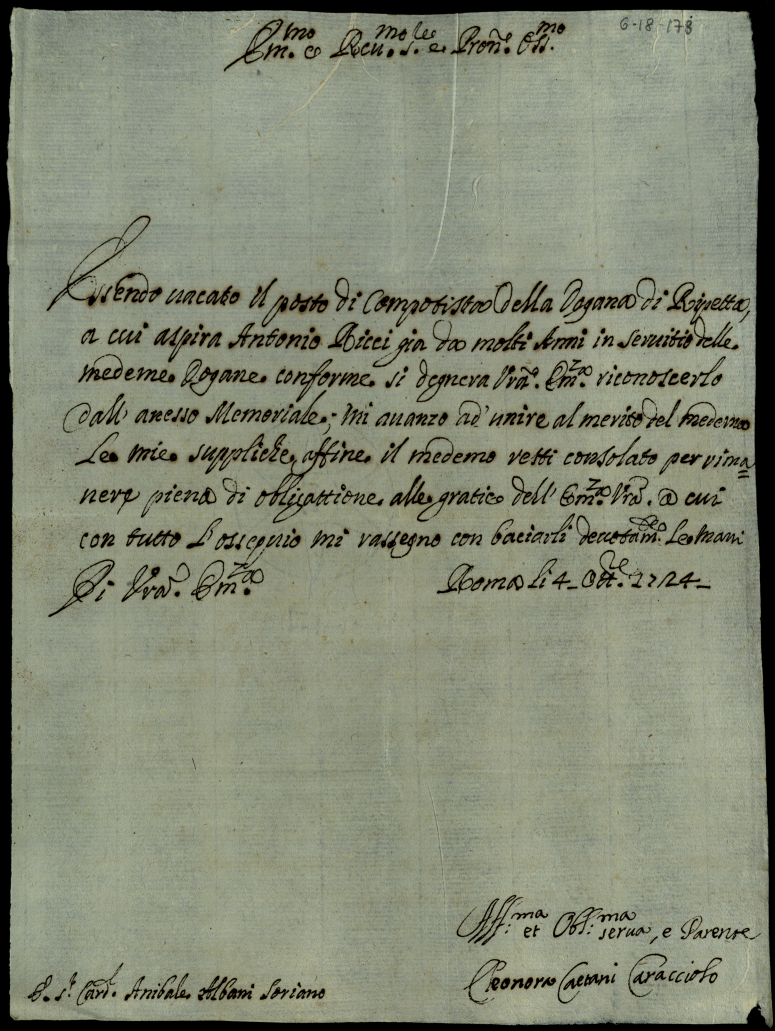 6-18-178
Em.mo e Reu.mo S.le e Pron. Oss.mo
Essendo uacato il posto di Compotista della Dogana di Ripetta,
a cui aspira Antonio Ricci gia da molti Anni in seruitio delle
medeme Dogane conforme si degnera Vra. Em.za riconoscerlo
dall' anesso Memoriale; mi auanzo ad' unire al merito del medemo
Le mie suppliche affine il medemo resti consolato per rima=
nere piena di obligattione alle gratie dell' Em.za Vra. a cui
con tutto L'ossequio mi rassegno con baciarli deuotam.te Le Mani
Di Vra. Em.za Roma li 4 Ott.re 1724
Aff.ma et Obl.ma serua, e Parente
Eleonora Caetani Caracciolo
S.r Card.l Anibale Albani Soriano